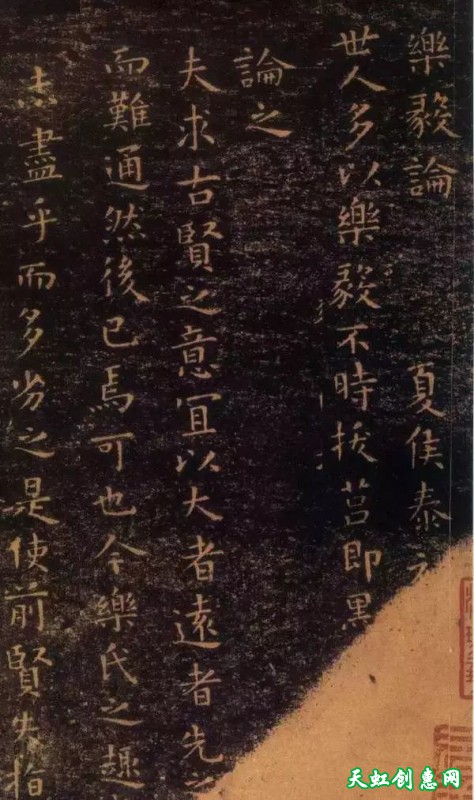 樂毅論 夏侯泰
世人多以樂毅不時拔莒即墨
論之
夫求古賢之意宜以大者遠者先之
而難通然後已焉可也今樂氏之趣
未盡乎而多劣之是使前賢失指
天虹创惠网